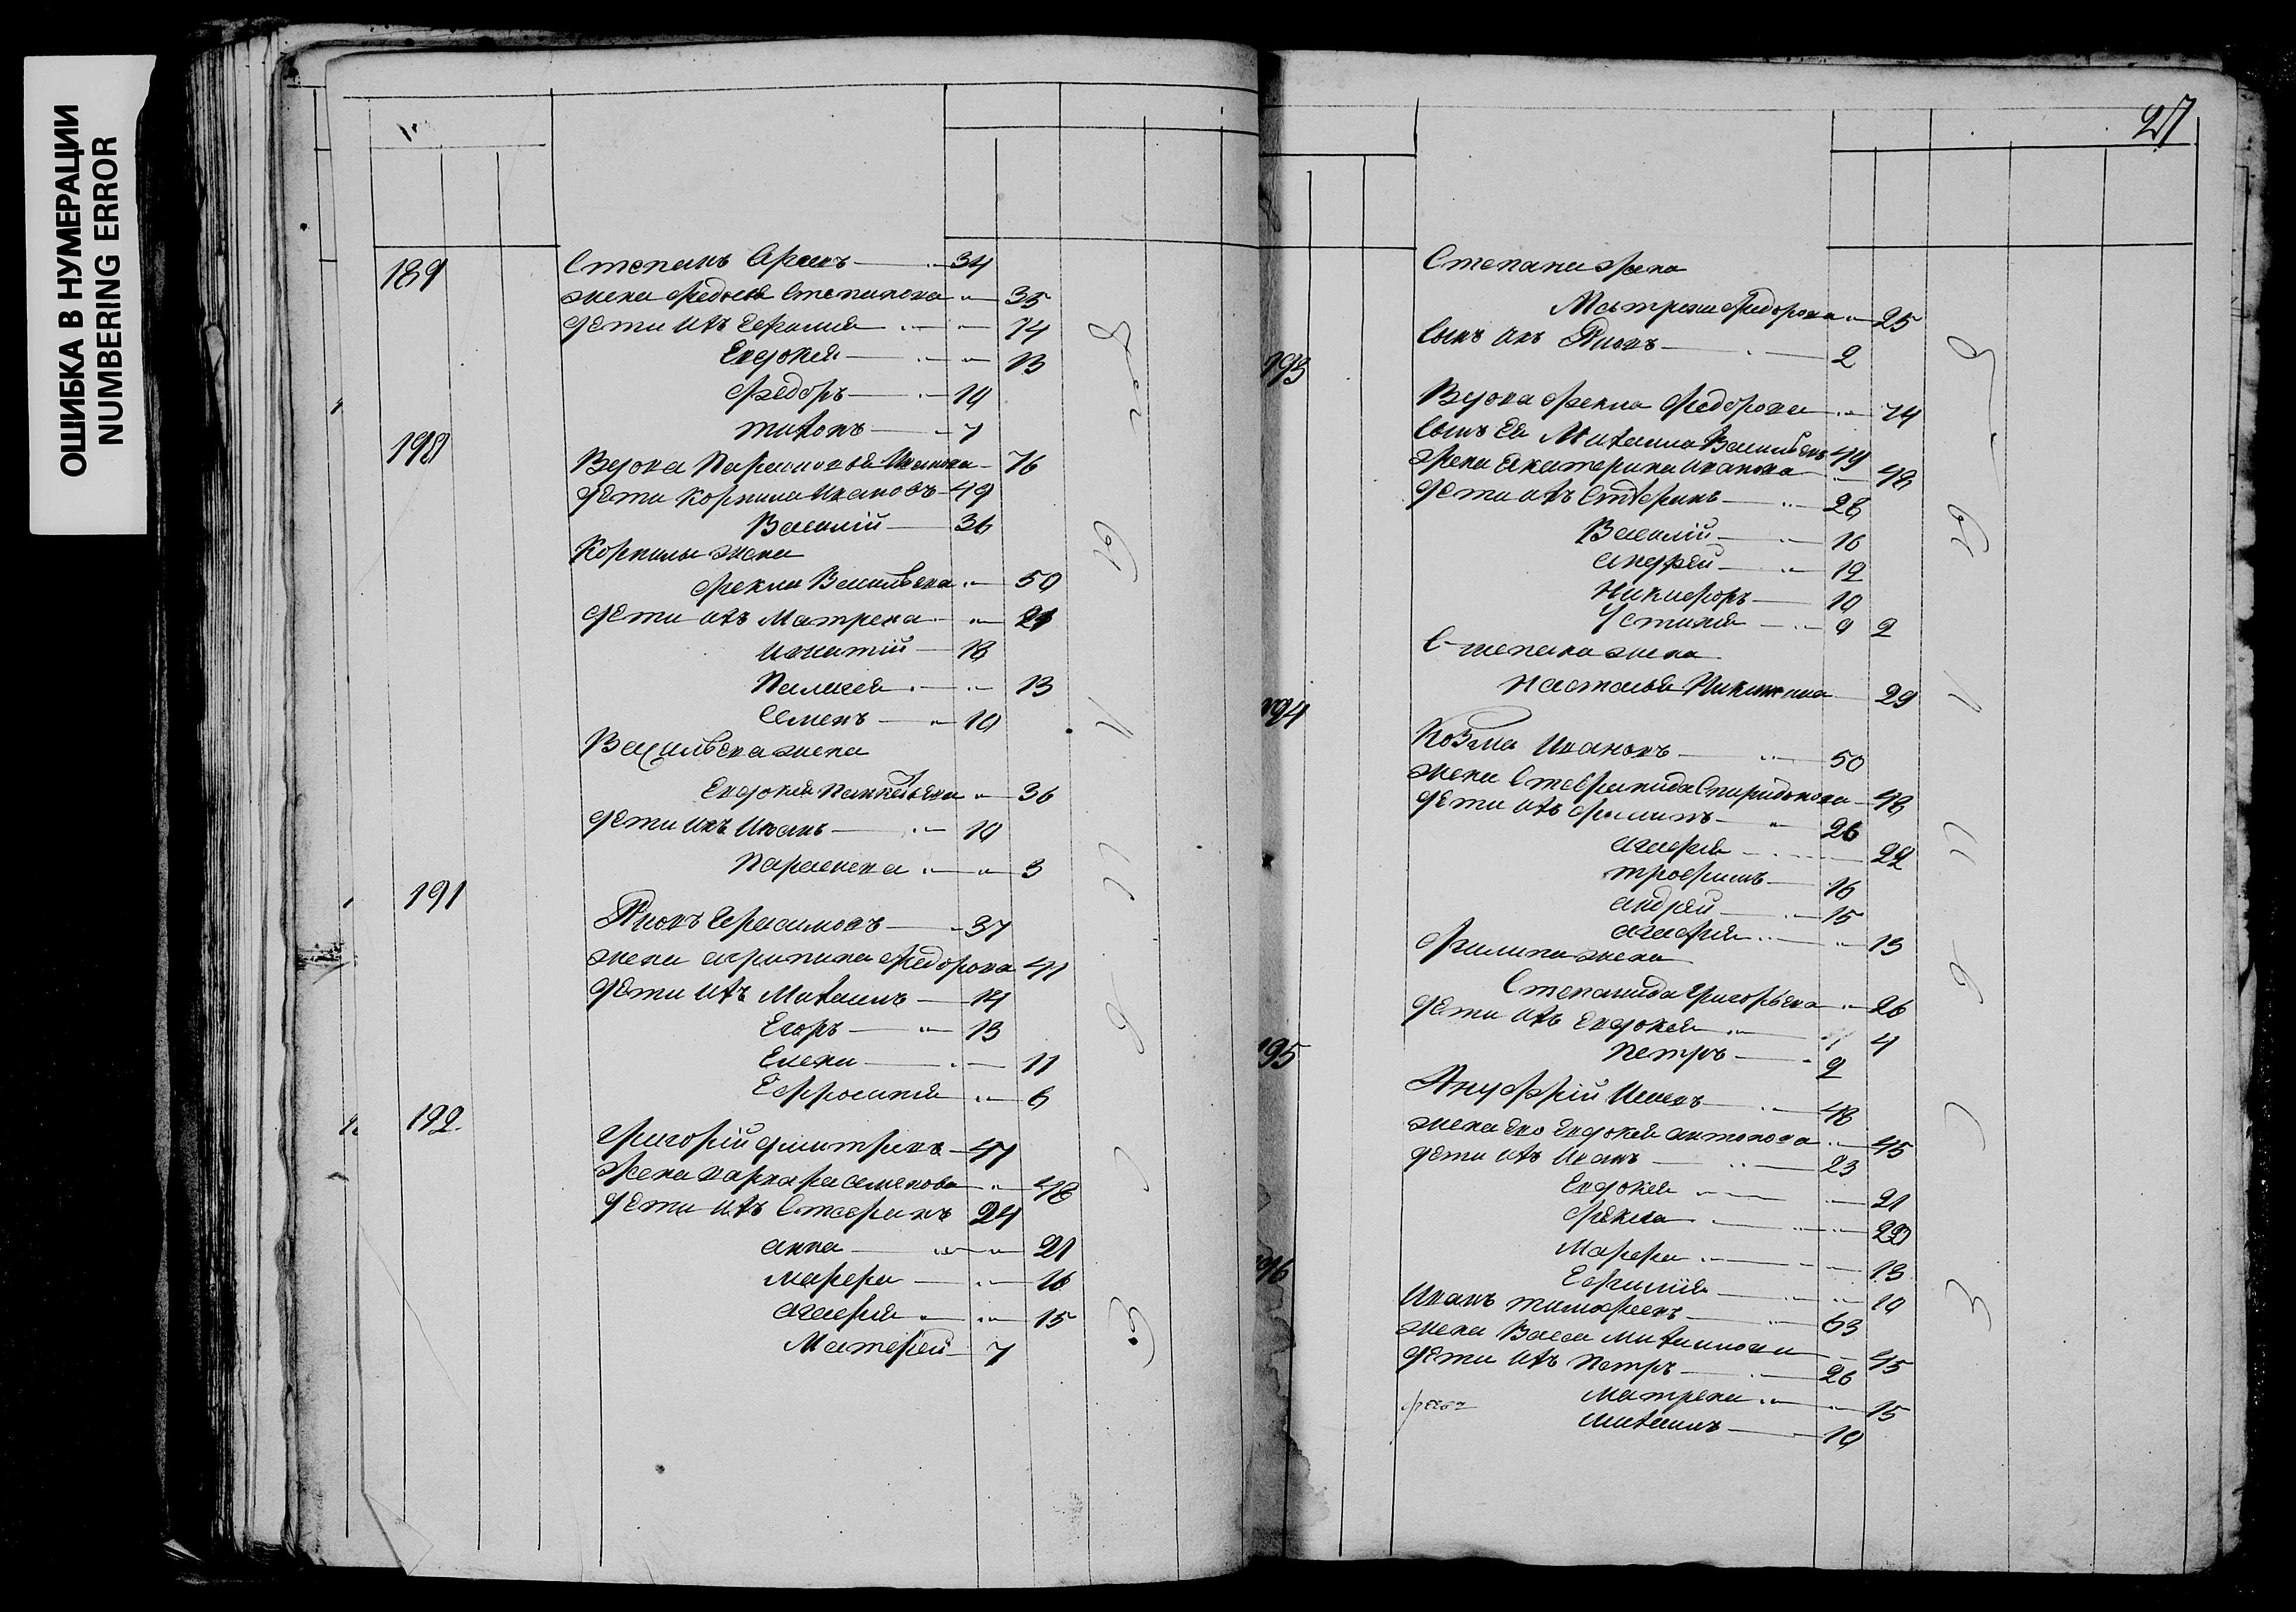 ОШИБКА В НУМЕРАЦИИ
NUMBERING ERROR
189 Степанъ 34
жена Федосья Степанова 35
дети ихъ 14
Евдокея 13
Федоръ 10
тихонъ 7
190 Вдова Парасковья Иванова 76
дети Корнила Ивановъ 49
Василій 36
Корнилы жена
Фекла Васильева 50
дети ихъ Матрена 21
Игнатій 18
Палагея 13
Семенъ 10
Васильева жена
Евдокея 36
дети ихъ Иванъ 10
Парасковея 3
191 Яковъ Герасимовъ 37
жена агрипина Федорова 41
дети ихъ Михаилъ 14
Егоръ 13
Елена 11
Ефросинья 6
192 григорій дмитріевъ 47
Жена варвара семенова 48
дети ихъ Стефанъ 24
анна 21
марфа 16
агафья 15
Матфей 7
27
Степана жена
Матрена Федорова 25
сынъ ихъ Яковъ 2
193
Вдова Фекла Федорова 74
сынъ Ея Михаила Васильевъ 49
жена Екатерина Иванова 48
дети ихъ Стефанъ 28
Василій 16
андрей 12
Никифоръ 10
Устинья 9 2
Степана жена
Настасья Никитина 29
194
Козма Ивановъ 50
жена Стефанида Спиридонова 48
дети ихъ филипъ 26
агафья 22
трофимъ 16
андрей 15
агафья 13
Филипа жена
Степанида григорьева 26
дети ихъ Евдокея 4
петръ 2
195
Ануфрій 48
жена Ево Евдокея антонова 45
дети ихъ Иванъ 23
Евдокея 21
фекла 20
Марфа 13
Ефимія 10
196
Иванъ тимофеевъ 63
жена Васса Михайлова 45
дети ихъ петръ 26
матрена 15
михаилъ 10